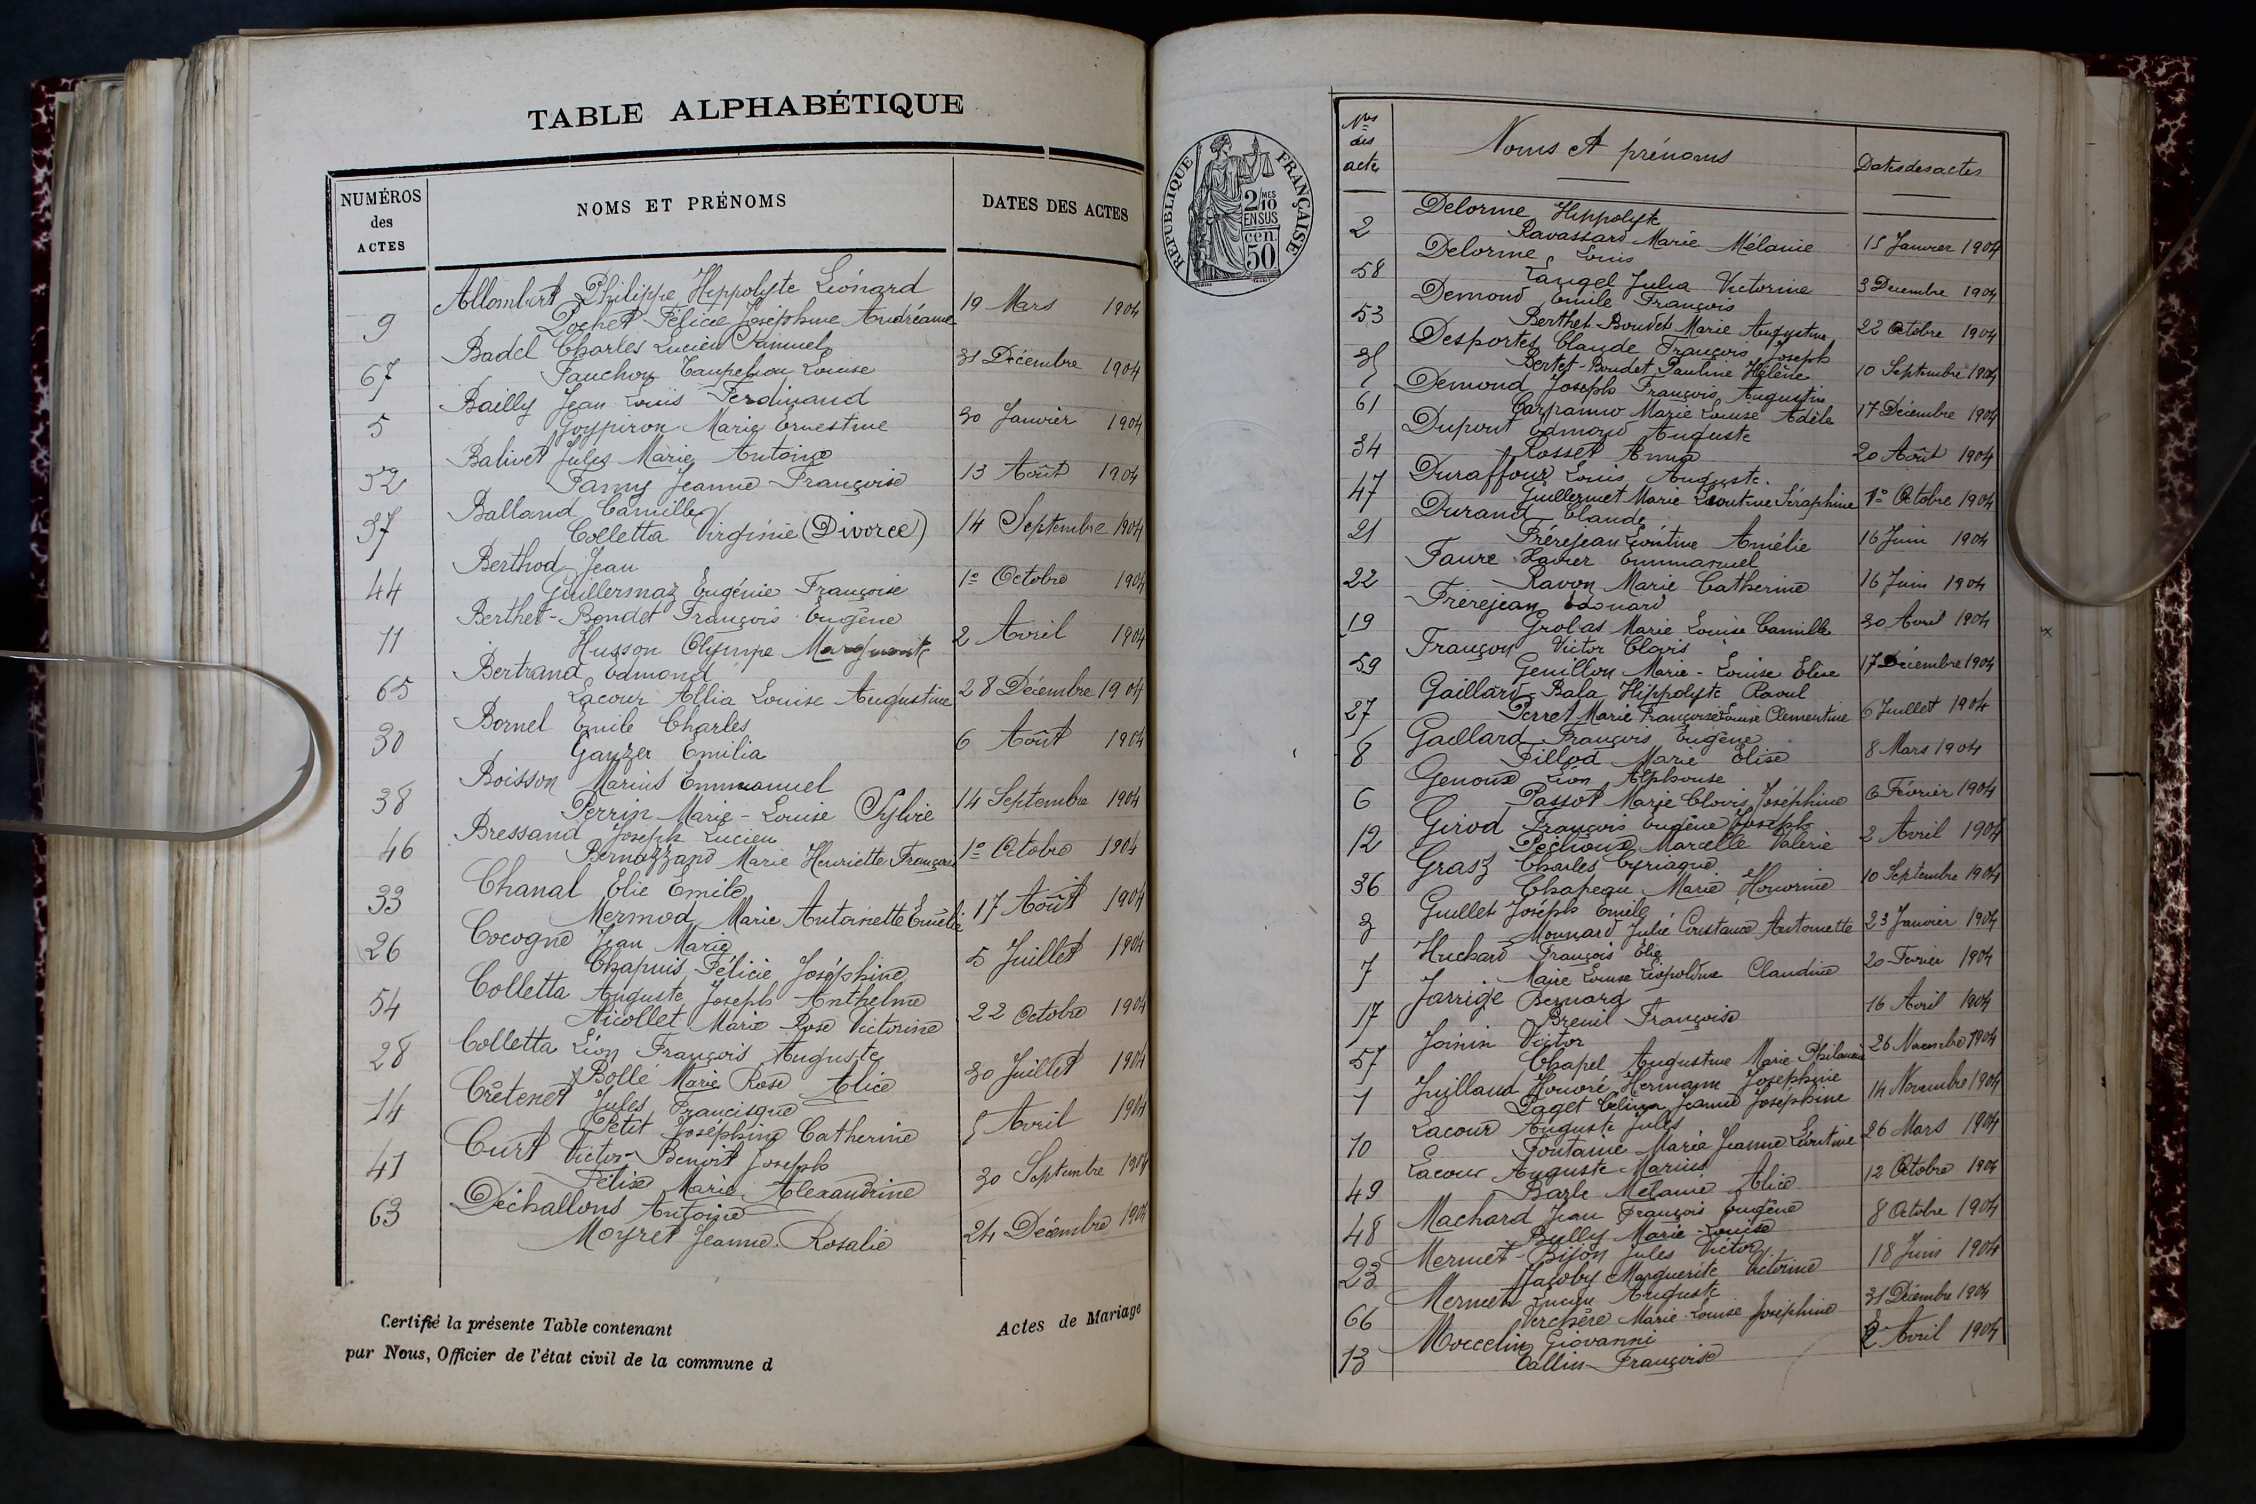 TABLE ALPHABÉTIQUE
NUMÉROS des ACTES
NOMS ET PRÉNOMS
DATES DES ACTES
Allombert Philippe Hippolyte Léonard
9 Pochet Félicie Joséphine Andréanne 19 Mars 1904
Badel Charles Lucien Samuel
67 Fauchon Louise 31 Décembre 1904
Bailly Jean Louis Ferdinand
5 Marie Ernestine 30 Janvier 1904
Balivet Jules Marie Antoine
32 Fanny Jeanne Françoise 13 Août 1904
Balland Camille
37 Colletta Virginie (Divorce) 14 Septembre 1904
Berthod Jean
44 Guillermaz Eugénie Françoise 1e Octobre 1904
Berthet-Bondet François Eugène
11 Husson Olympe 2 Avril 1904
Bertrand Edmond
65 Lacour Allia Louise Augustine 28 Décembre 1904
Bornel Emile Charles
30 Gauzer Emilia 6 Août 1904
Boisson Marius Emmanuel
38 Perrin Marie-Louise Sylvie 14 Septembre 1904
Bressand Joseph Lucien
46 Marie Henriette Françoise 1e Octobre 1904
Chanal Elie Emile
33 Mermod Marie Antoinette Emélie 17 Août 1904
Cocogne Jean Marie
26 Chapuis Félicie Joséphine 5 Juillet 1904
Colletta Auguste Joseph Anthelme
54 Nicollet Marie Rose Victorine 22 Octobre 1904
Colletta Léon François Auguste
28 Bollé Marie Rose Alice 30 Juillet 1904
Crétenet Jules Francisque
14 Petit Joséphine Catherine 5 Avril 1904
Curt Victor-Benoit Joseph
41 Félix Marie Alexandrine 30 Septembre 1904
Déchallons Antoine
63 Moyret Jeanne Rosalie 24 Décembre 1904
Certifié la présente Table contenant Actes de Mariage
par Nous, Officier de l'état civil de la commune d
RÉPUBLIQUE FRANÇAISE
2/10 MES
EN SUS
50 cen
Nos des actes
Noms et prénoms
Dates des actes
Delorme Hippolyte
2 Ravassard Marie Mélanie 15 Janvier 1904
Delorme Louis
58 Langel Julia Victorine 3 Décembre 1904
Demond Emile François
53 Berthet-Boudet Marie Augustine 22 Octobre 1904
Desportes Claude François Joseph
35 Bertet-Boudet Pauline Hélène 10 Septembre 1904
Demond Joseph François Augustin
61 Marie Louise Adèle 17 Décembre 1904
Dupont Edmond Auguste
34 Rosset Anna 20 Août 1904
Duraffour Louis Auguste.
47 Guillermet Marie Léontine Séraphine 1e Octobre 1904
Durand Claude
21 Frérejean Léontine Amélie 16 Juin 1904
Faure Xavier Emmanuel
22 Ravon Marie Catherine 16 Juin 1904
Frérejean Edouard
19 Grolas Marie Louise Camille 30 Avril 1904
Françon Victor Clovis
59 Genillon Marie-Louise Elise 17 Décembre 1904
Gaillard-Bala Hippolyte Raoul
27 Perret Marie Françoise Louise Clementine 6 Juillet 1904
Gaillard François Eugène
8 Pillod Marie Elise 8 Mars 1904
Genoux Léon Alphonse
6 Passot Marie Clovis Joséphine 6 Février 1904
Girod François Eugène Joseph
12 Péchoux Marcelle Valérie 2 Avril 1904
Grasz Charles Cyriaque
36 Chapeau Marie Honorine 10 Septembre 1904
Guillet Joseph Emile
3 Monnard Julie Constance Antoinette 23 Janvier 1904
Huchard François Elie
7 Maire Louise Léopoldine Claudine 20 Février 1904
Jarrige Bernard
17 Breuil Françoise 16 Avril 1904
Joinin Victor
57 Chapel Augustine Marie 26 Novembre 1904
Juilland Honoré Hermann Joséphine
1 Paget Célina Jeanne Joséphine 14 Novembre 1904
Lacour Auguste Jules
10 Fontaine Marie Jeanne Léontine 26 Mars 1904
Lacour Auguste Marius
49 Barle Mélanie Alice 12 Octobre 1904
Machard Jean François Eugène
48 Bully Marie-Louise 8 Octobre 1904
Mermet-Bijon Jules Victor
23 Jacoby Marguerite Victorine 18 Juin 1904
Mermet Lucien Auguste
66 Verchère Marie-Louise Joséphine 31 Décembre 1904
Moccelin Giovanni
13 Callin Françoise 2 Avril 1904